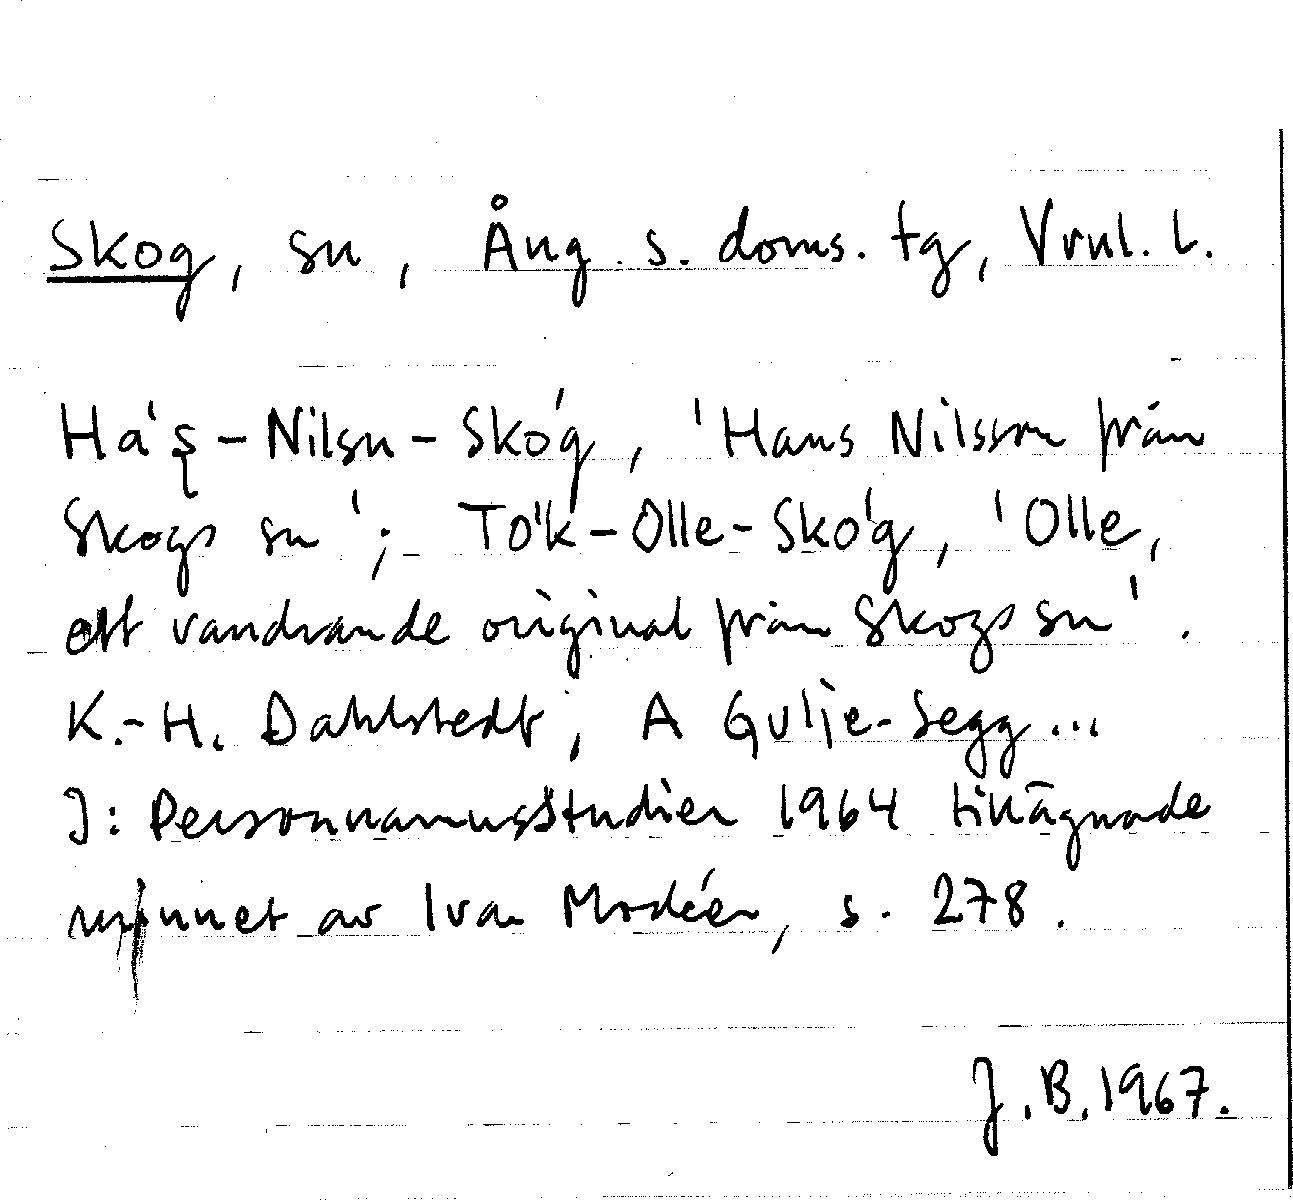 Skog, sn, Ång. s. doms. tg, Vrnl. l.
Ha'ş-Nilsn-Sko'g, 'Hans Nilsson från
Skogs sn'; To'k-Olle-Sko'g, 'Olle,
ett vandrande original från Skogs sn'.
K.-H. Dahlstedt, A Gulje-Segg...
J: Personnamnsstudier 1964 tillägnade
minnet av Ivar Modéer, s. 278.
J.B.1967.